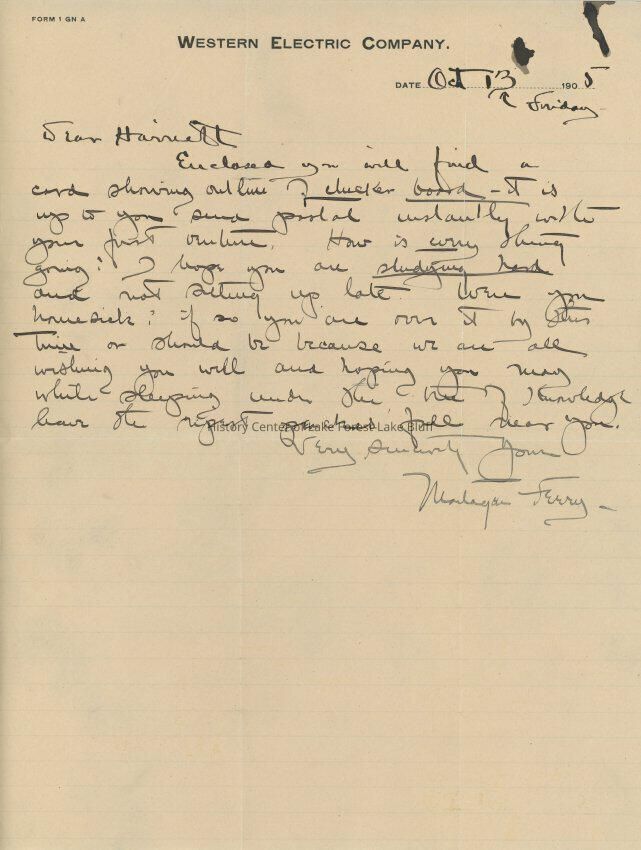 FORM 1 GN A
WESTERN ELECTRIC COMPANY.
DATE Oct 13 1905
↑ Friday
Dear Harriett
Enclosed you will find a
card showing outline of checker board - It is
up to you send postal instantly with
your first venture. How is every thing
going? I hope you are studying hard
and not sitting up late Were you
homesick? if so you are over it by this
time or should be because we are all
wishing you well and hoping you may
while sleeping under the tree of Knowledge
have the ripest peaches fall near you.
History Center of Lake Forest-Lake Bluff
Very Sincerely Yours
Ferry -